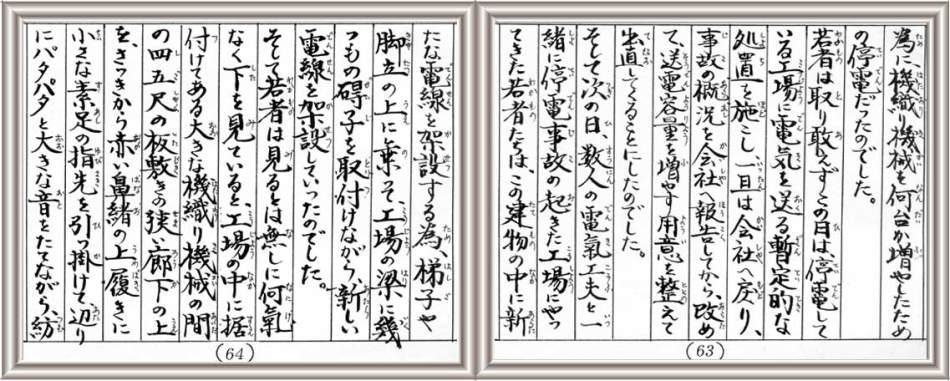 為に、機織り機械を何台か増やしたため
の停電だったのでした。
若者は取り敢えずこの日は、停電して
いる工場に電気を送る暫定的な
処置を施こし一旦は会社へ戻り、
事故の概況を会社へ報告してから、改め
て、送電容量を増やす用意を整えて
出直してくることにしたのでした。
そして次の日、数人の電氣工夫と一
緒に停電事故の起きた工場にやっ
てきた若者たちは、この建物の中に新
(63)
たな電線を架設する為、梯子や
脚立の上に乗って、工場の梁に幾
つもの碍子を取付けながら、新しい
電線を架設していったのでした。
そして若者は見るとは無しに何氣
なく下を見ていると、工場の中に据
付けてある大きな機織り機械の間
の四五尺の板敷きの狭い廊下の上
を、さっきから赤い鼻緒の上履きに
小さな素足の指先を引っ掛けて、辺り
にパタパタと大きな音をたてながら、紡
(64)